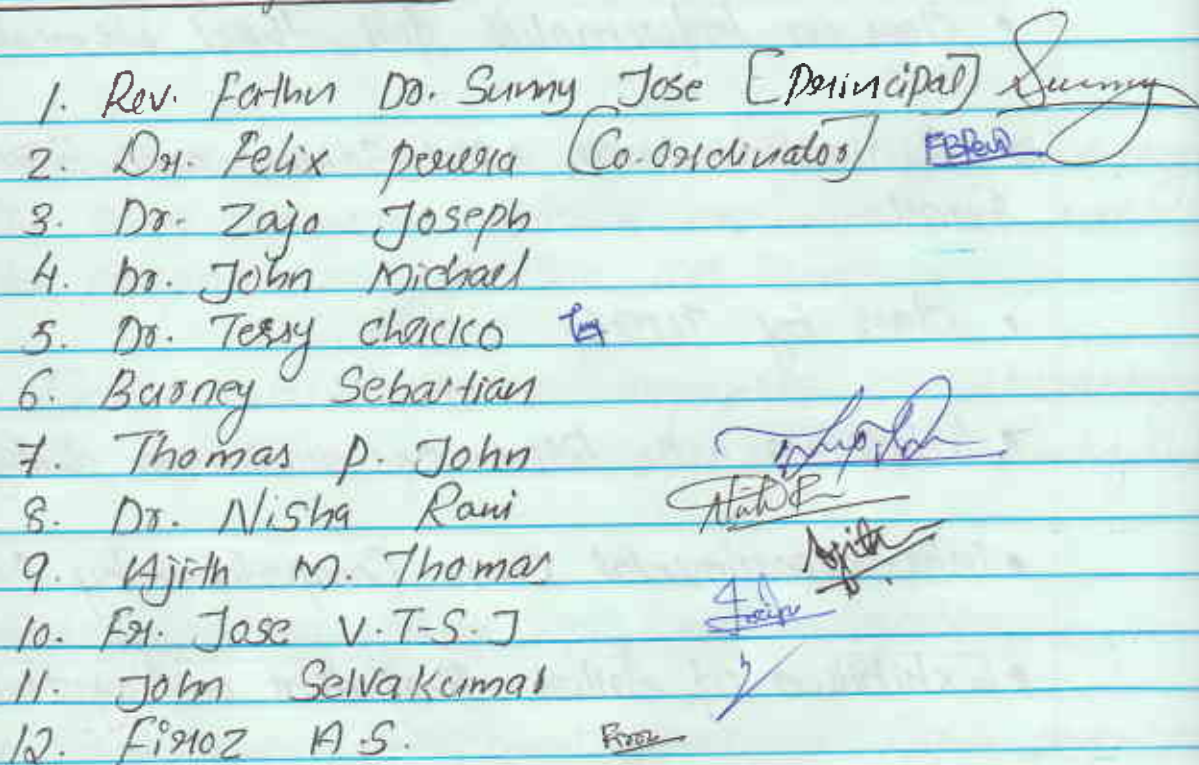 1. Rev. Farthur Dr. Sunny Jose [Principal] Sunny
2. Dr. Felix perera [Co-ordinator]
3. Dr. Zajo Joseph
4. Dr. John Michael
5. Dr. Terry chacko
6. Barney Sebastian
7. Thomas P. John
8. Dr. Nisha Rani
9. Ajith M. Thomas Ajith
10. Fr. Jose V.T-S.J
11. John Selvakumar
12. Firoz A.S. Firoz